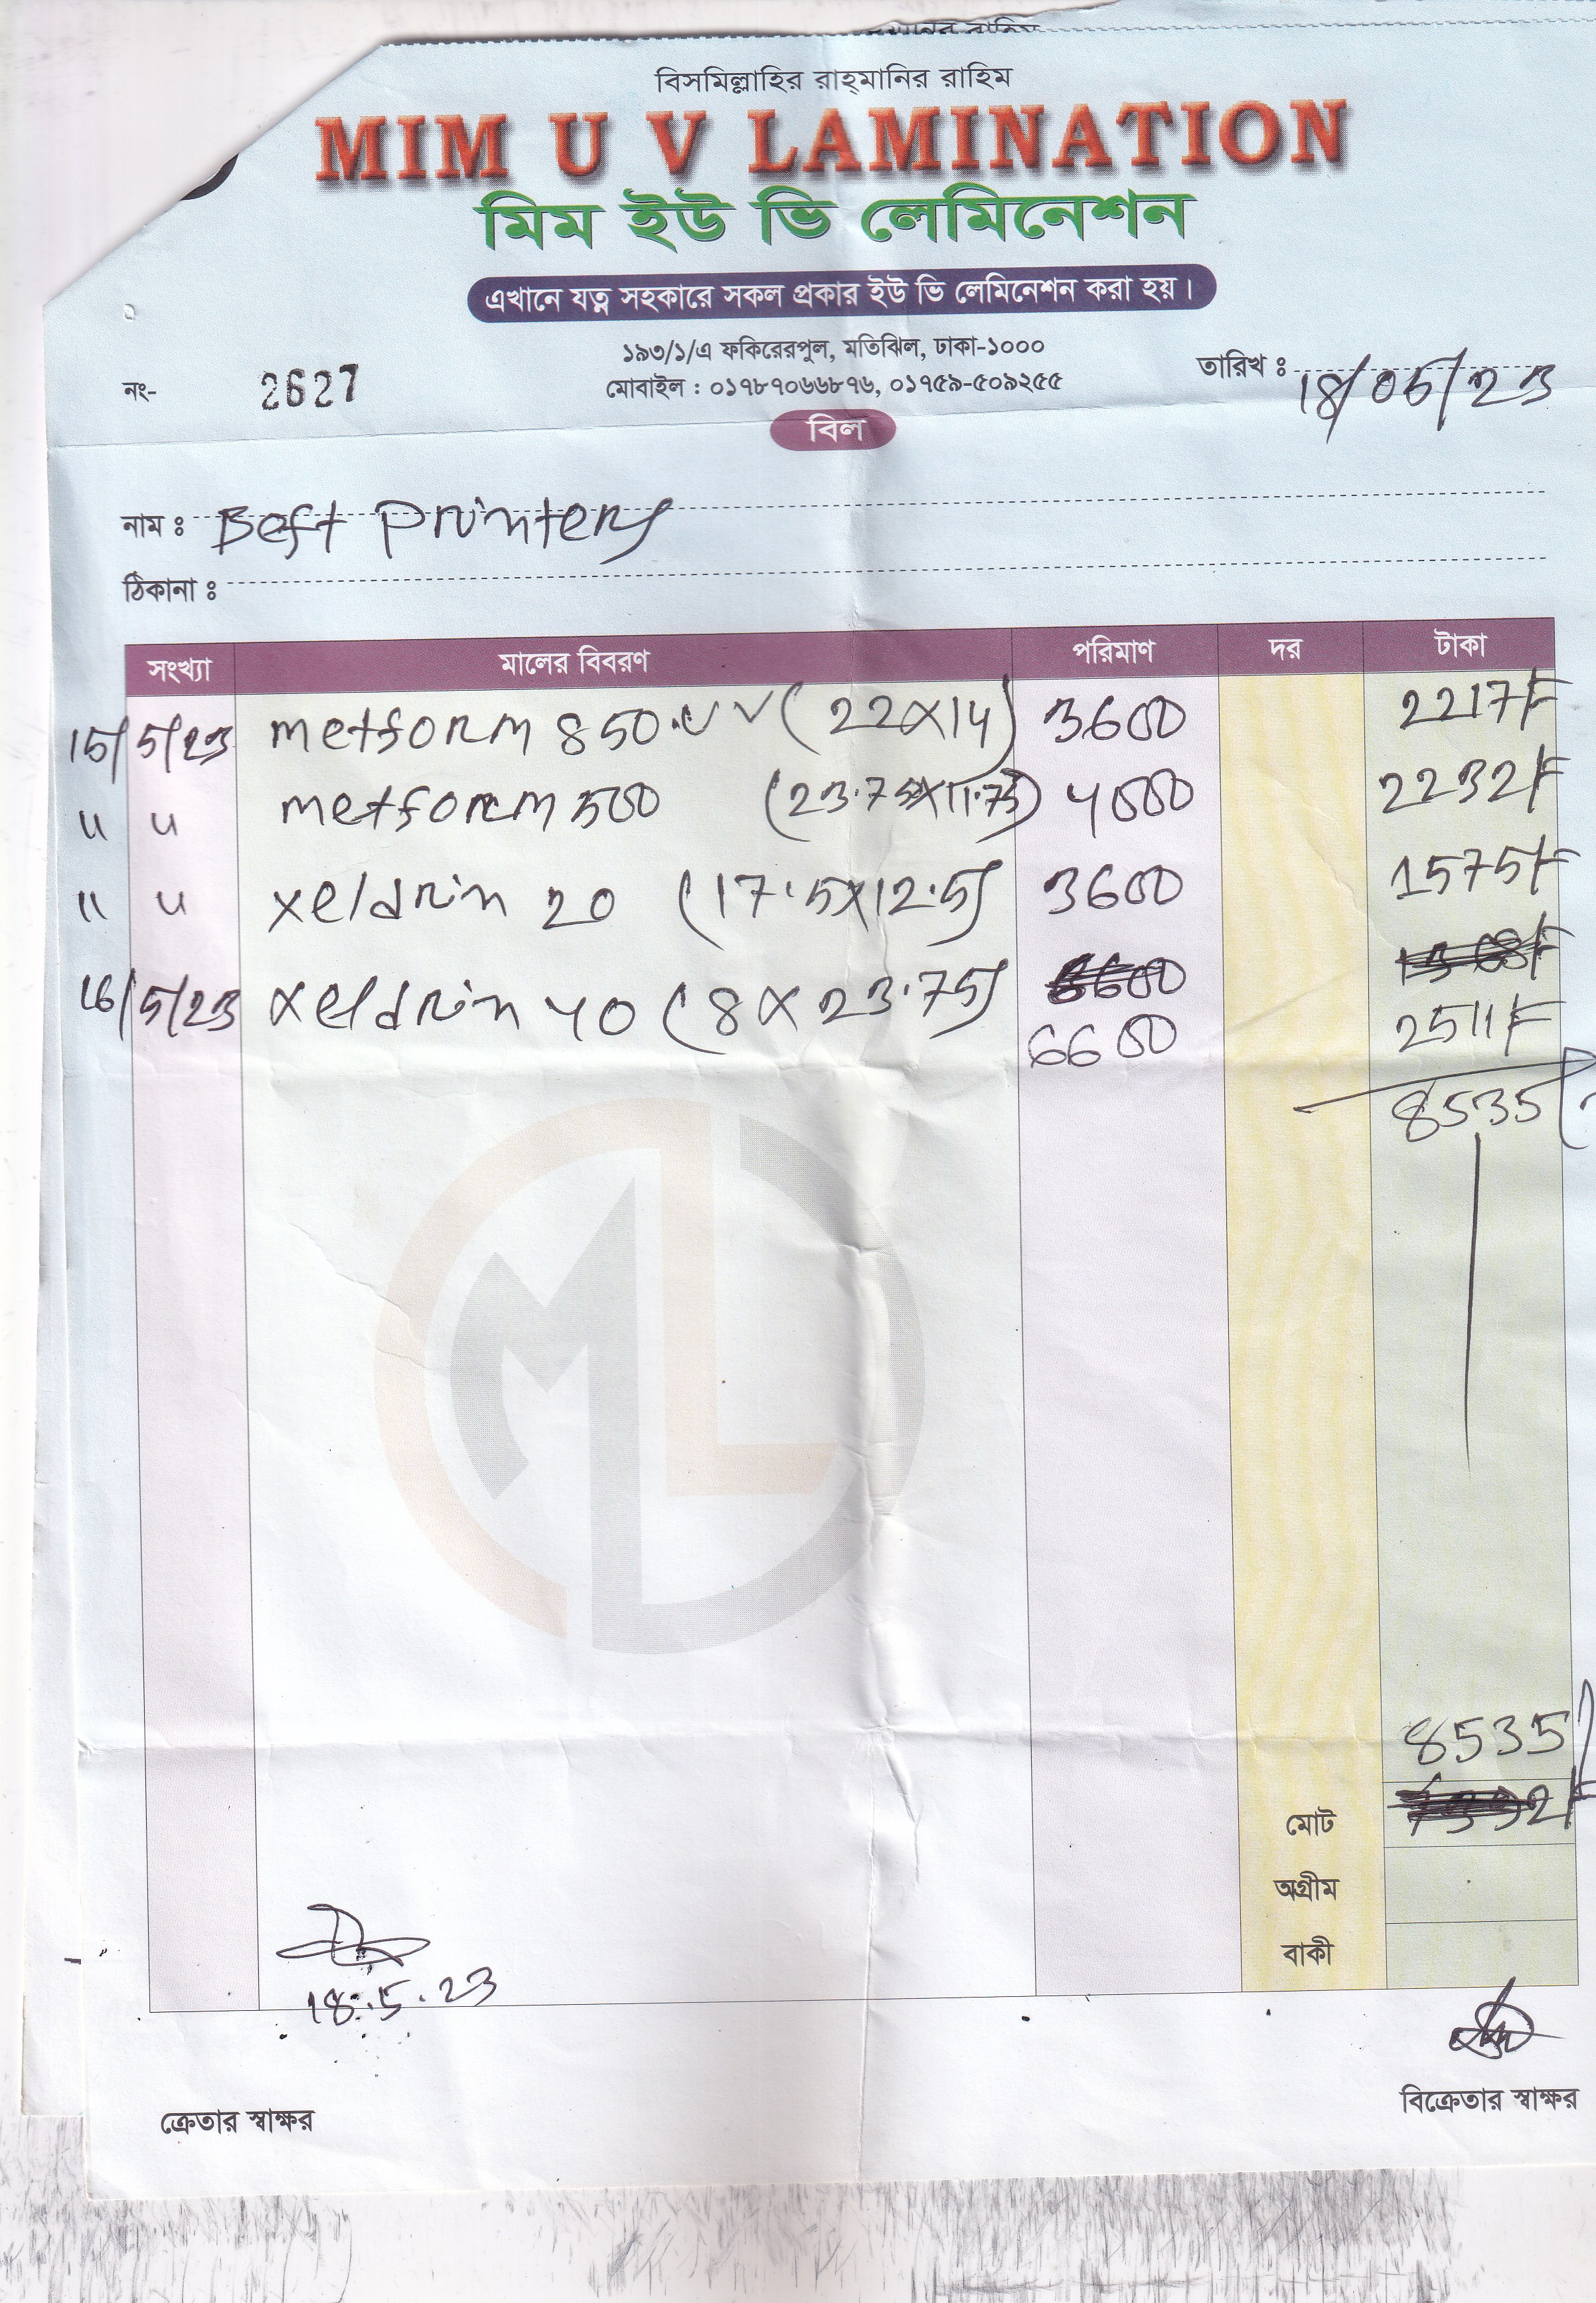 বিসমিল্লাহির রাহ্‌মানির রাহিম
MIM U V LAMINATION
মিম ইউ ভি লেমিনেশন
এখানে যত্ন সহকারে সকল প্রকার ইউ ভি লেমিনেশন করা হয়।
১৯৩/১/এ ফকিরেরপুল, মতিঝিল, ঢাকা-১০০০
নং- 2627 মোবাইল : ০১৭৮৭০৬৬৮৭৬, ০১৭৫৯-৫০৯২৫৫ তারিখ : 18/05/23
বিল
নাম : Best Printery
ঠিকানা :
সংখ্যা মালের বিবরণ পরিমাণ দর টাকা
15/5/23 metform 850 UV (22x14) 3600 2217/=
" " metform 500 (23.75x11.75) 4000 2232/=
" " xeldrin 20 (17.5x12.5) 3600 1575/=
16/5/23 xeldrin 40 (8x23.75)
6600 2511/=
8535/=
8535/
মোট
অগ্রীম
বাকী
18.5.23
ক্রেতার স্বাক্ষর বিক্রেতার স্বাক্ষর